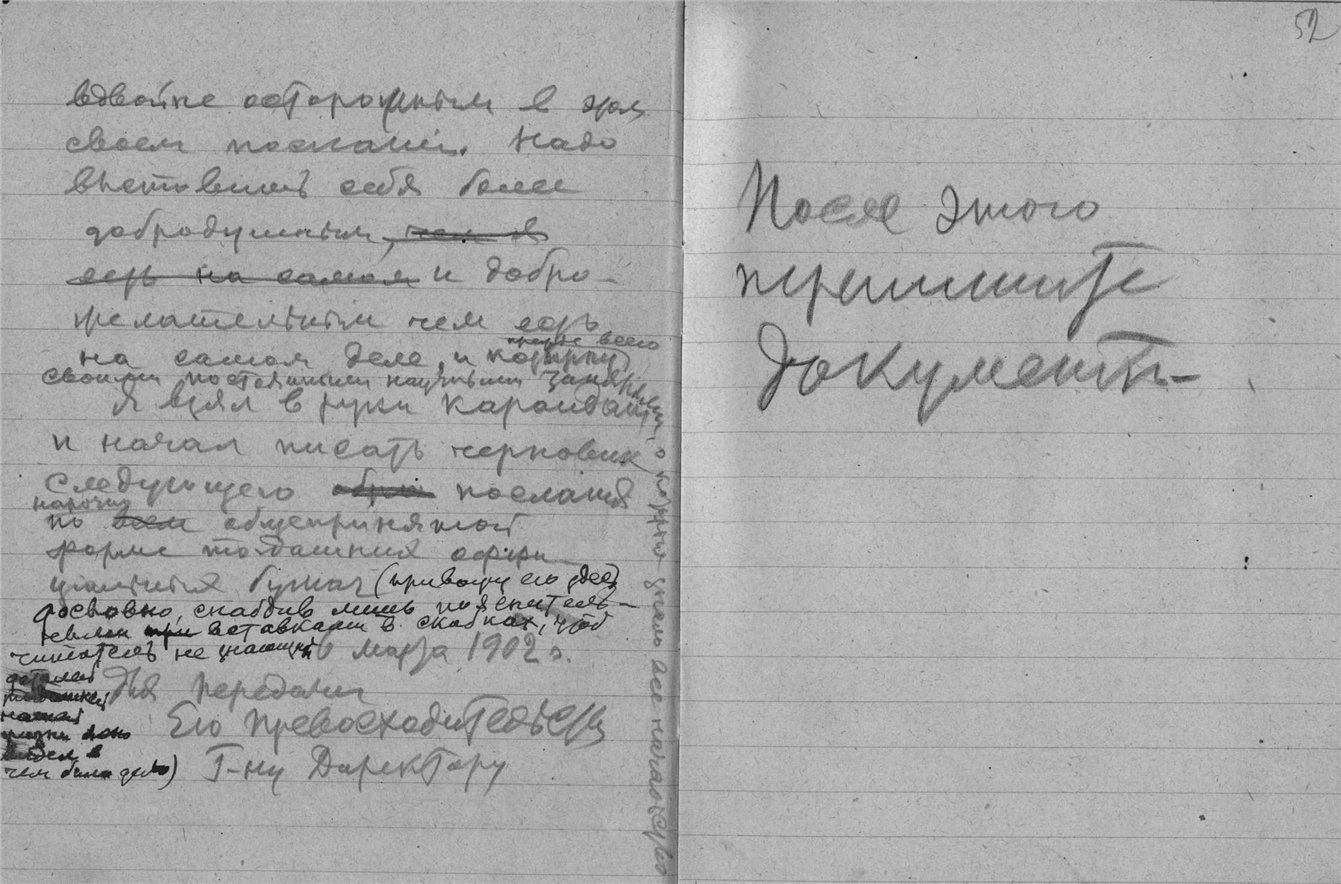 вдвойне осторожным в этом
своем послании. Надо
выставить себя более
добродушным, чем я
есть на самом и добро-
желательным чем есть
на самом деле, и прежде всего
своими постоянными научными занятиями, о которых знало все начальство
Я взял в руки карандаш
и начал писать черновик
следующего послания
нарочно
по всем общепринятой
форме тогдашних офи-
циальных бумаг (привожу его здесь
дословно, снабдив лишь пояснитель-
ными при вставками в скобках, чтоб
читатель не знающий
деталей
тогдашней
нашей
жизни ясно
видел в
чем было дело)
марта 1902 г.
Для передачи
Его Превосходительству
Г-ну Директору
52
После этого
перепишите
документ-